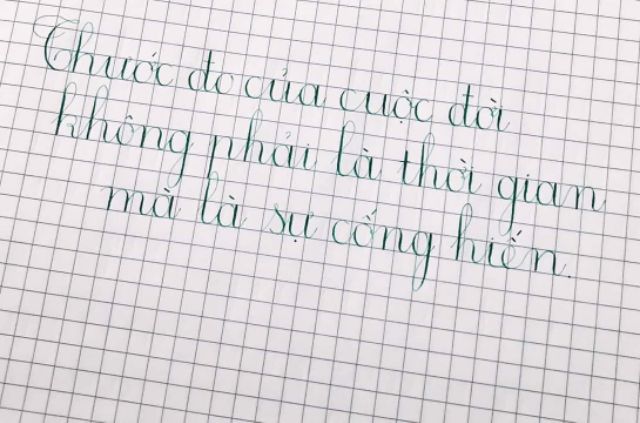 Thước đo của cuộc đời
không phải là thời gian
mà là sự cống hiến.